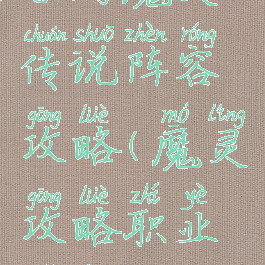 chuán shuō zhèn róng
传说阵容
gōng lüè mó líng
攻略(魔灵
gōng lüè zhí yè
攻略职业